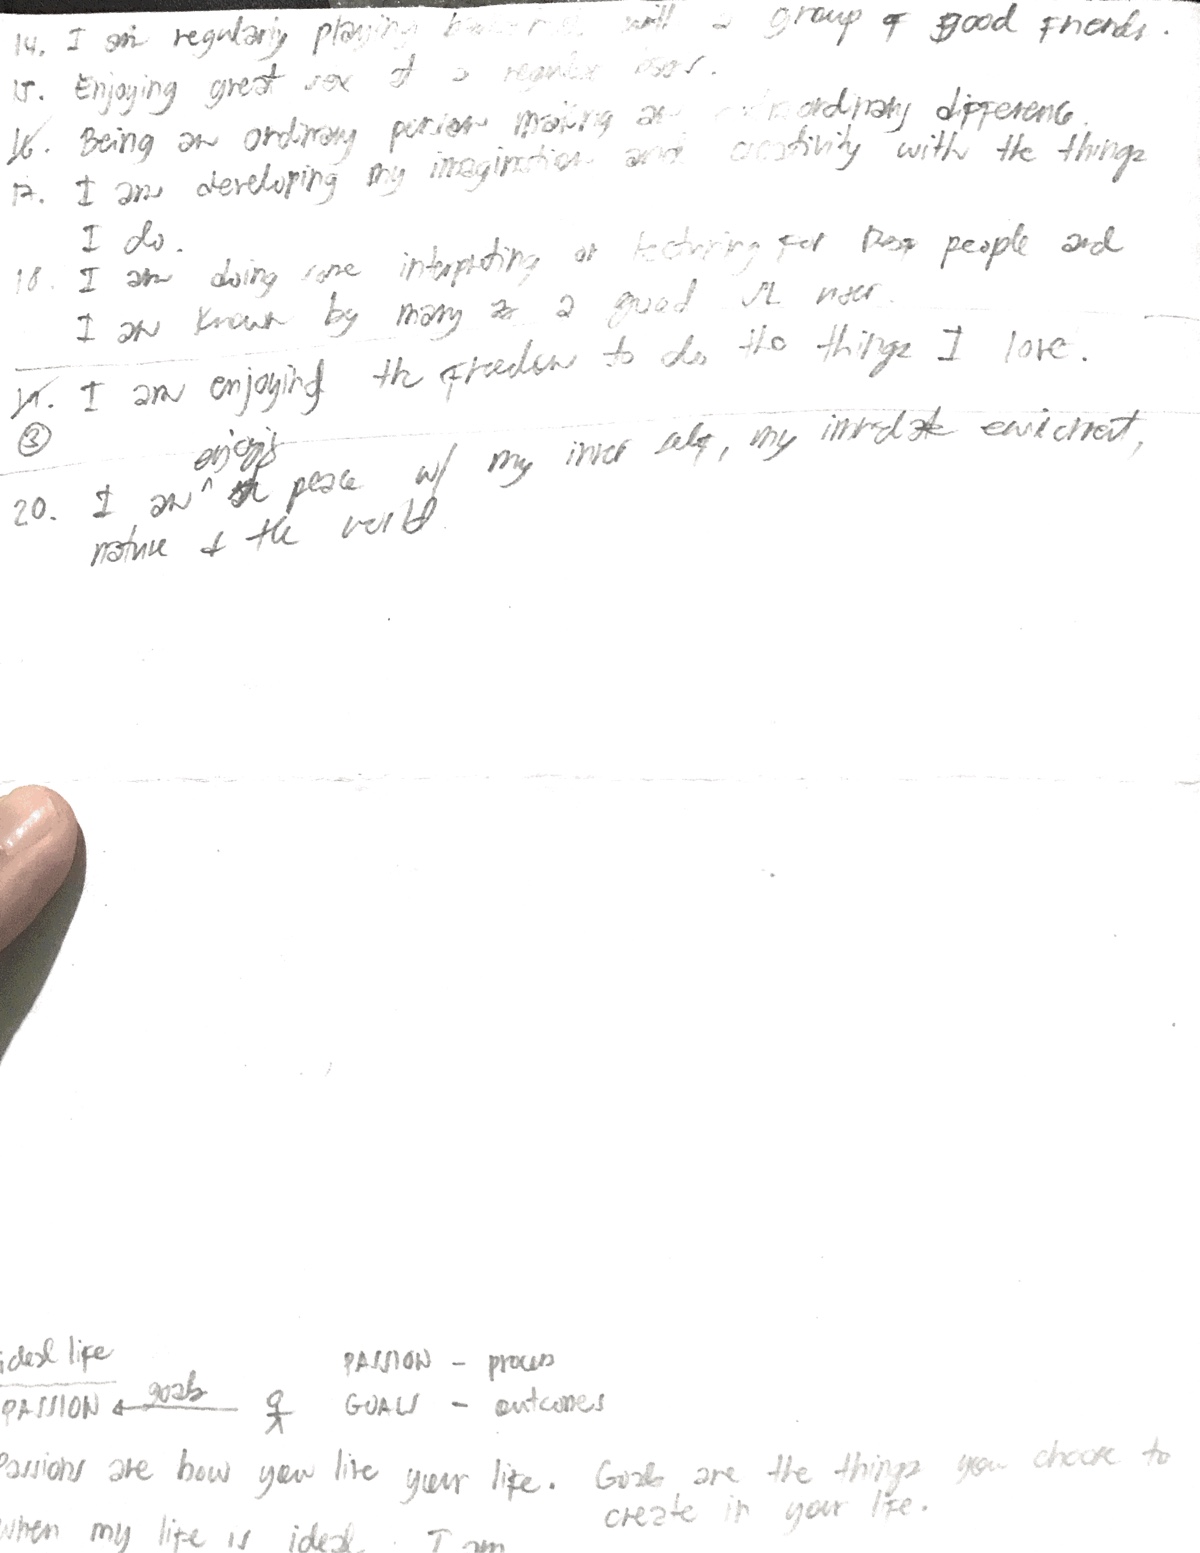 14. I am regularly playing with a group of good friends.
15. Enjoying great sex at a regular
16. Being an ordinary person making an extraordinary difference.
17. I am developing my imagination and creativity with the things
I do.
18. I am doing some interpreting or lecturing for Deaf people and
I am known by many as a good SL user.
19. I am enjoying the freedom to do the things I love.
③
enjoying
20. I am ^ peace w/ my inner self, my immediate enviroment,
nature & the world
ideal life PASSION - process
PASSION ← goals GOALS - outcomes
Passions are how you live your life. Goals are the things you choose to
create in your life.
When my life is ideal, I am